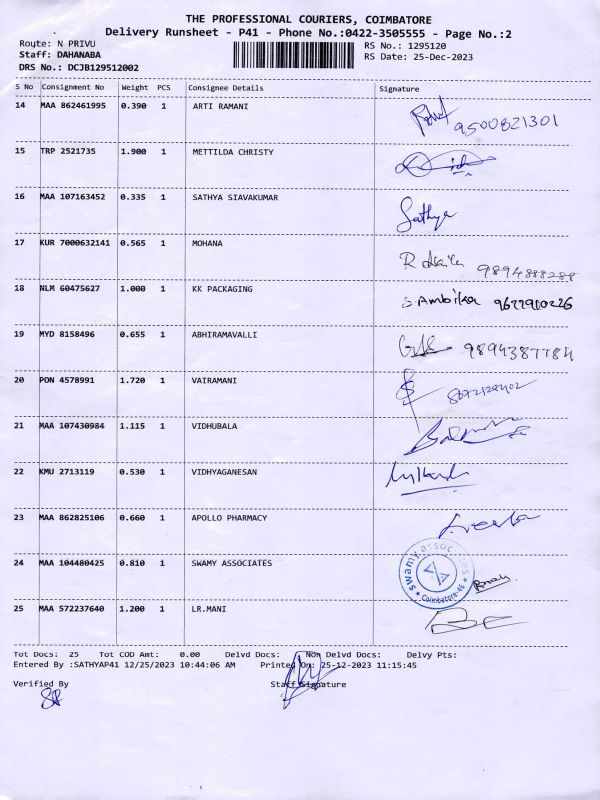 THE PROFESSIONAL COURIERS, COIMBATORE
Delivery Runsheet - P41 - Phone No.:0422-3505555 - Page No.:2
Route: N PRIVU RS No.: 1295120
Staff: DAHANABA RS Date: 25-Dec-2023
DRS No.: DCJB129512002
S No Consignment No Weight PCS Consignee Details Signature
14 MAA 862461995 0.390 1 ARTI RAMANI 9500821301
15 TRP 2521735 1.900 1 METTILDA CHRISTY
16 MAA 107163452 0.335 1 SATHYA SIAVAKUMAR Sathya
17 KUR 7000632141 0.565 1 MOHANA R 9894888288
18 NLM 60475627 1.000 1 KK PACKAGING S Ambika
19 MYD 8158496 0.655 1 ABHIRAMAVALLI 9894387784
20 PON 4578991 1.720 1 VAIRAMANI
21 MAA 107430984 1.115 1 VIDHUBALA
22 KMU 2713119 0.530 1 VIDHYAGANESAN
23 MAA 862825106 0.660 1 APOLLO PHARMACY
24 MAA 104480425 0.810 1 SWAMY ASSOCIATES swamy associates Coimbatore-46
25 MAA 572237640 1.200 1 LR.MANI
Tot Docs: 25 Tot COD Amt: 0.00 Delvd Docs: Non Delvd Docs: Delvy Pts:
Entered By :SATHYAP41 12/25/2023 10:44:06 AM Printed On: 25-12-2023 11:15:45
Verified By Staff Signature